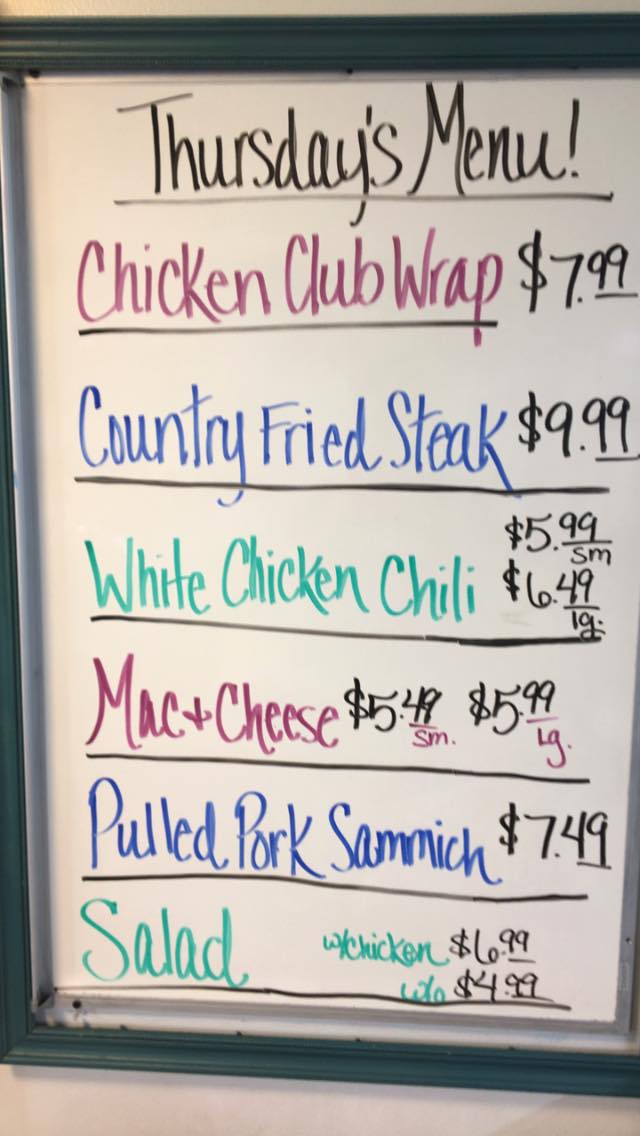 Thursday's Menu!
Chicken Club Wrap $7.99
Country Fried Steak $9.99
$5.99 sm
White Chicken Chili $6.49 lg.
Mac + Cheese $5.49 sm. $5.99 Lg.
Pulled Pork Sammich $7.49
Salad w/chicken $6.99
w/o $4.99